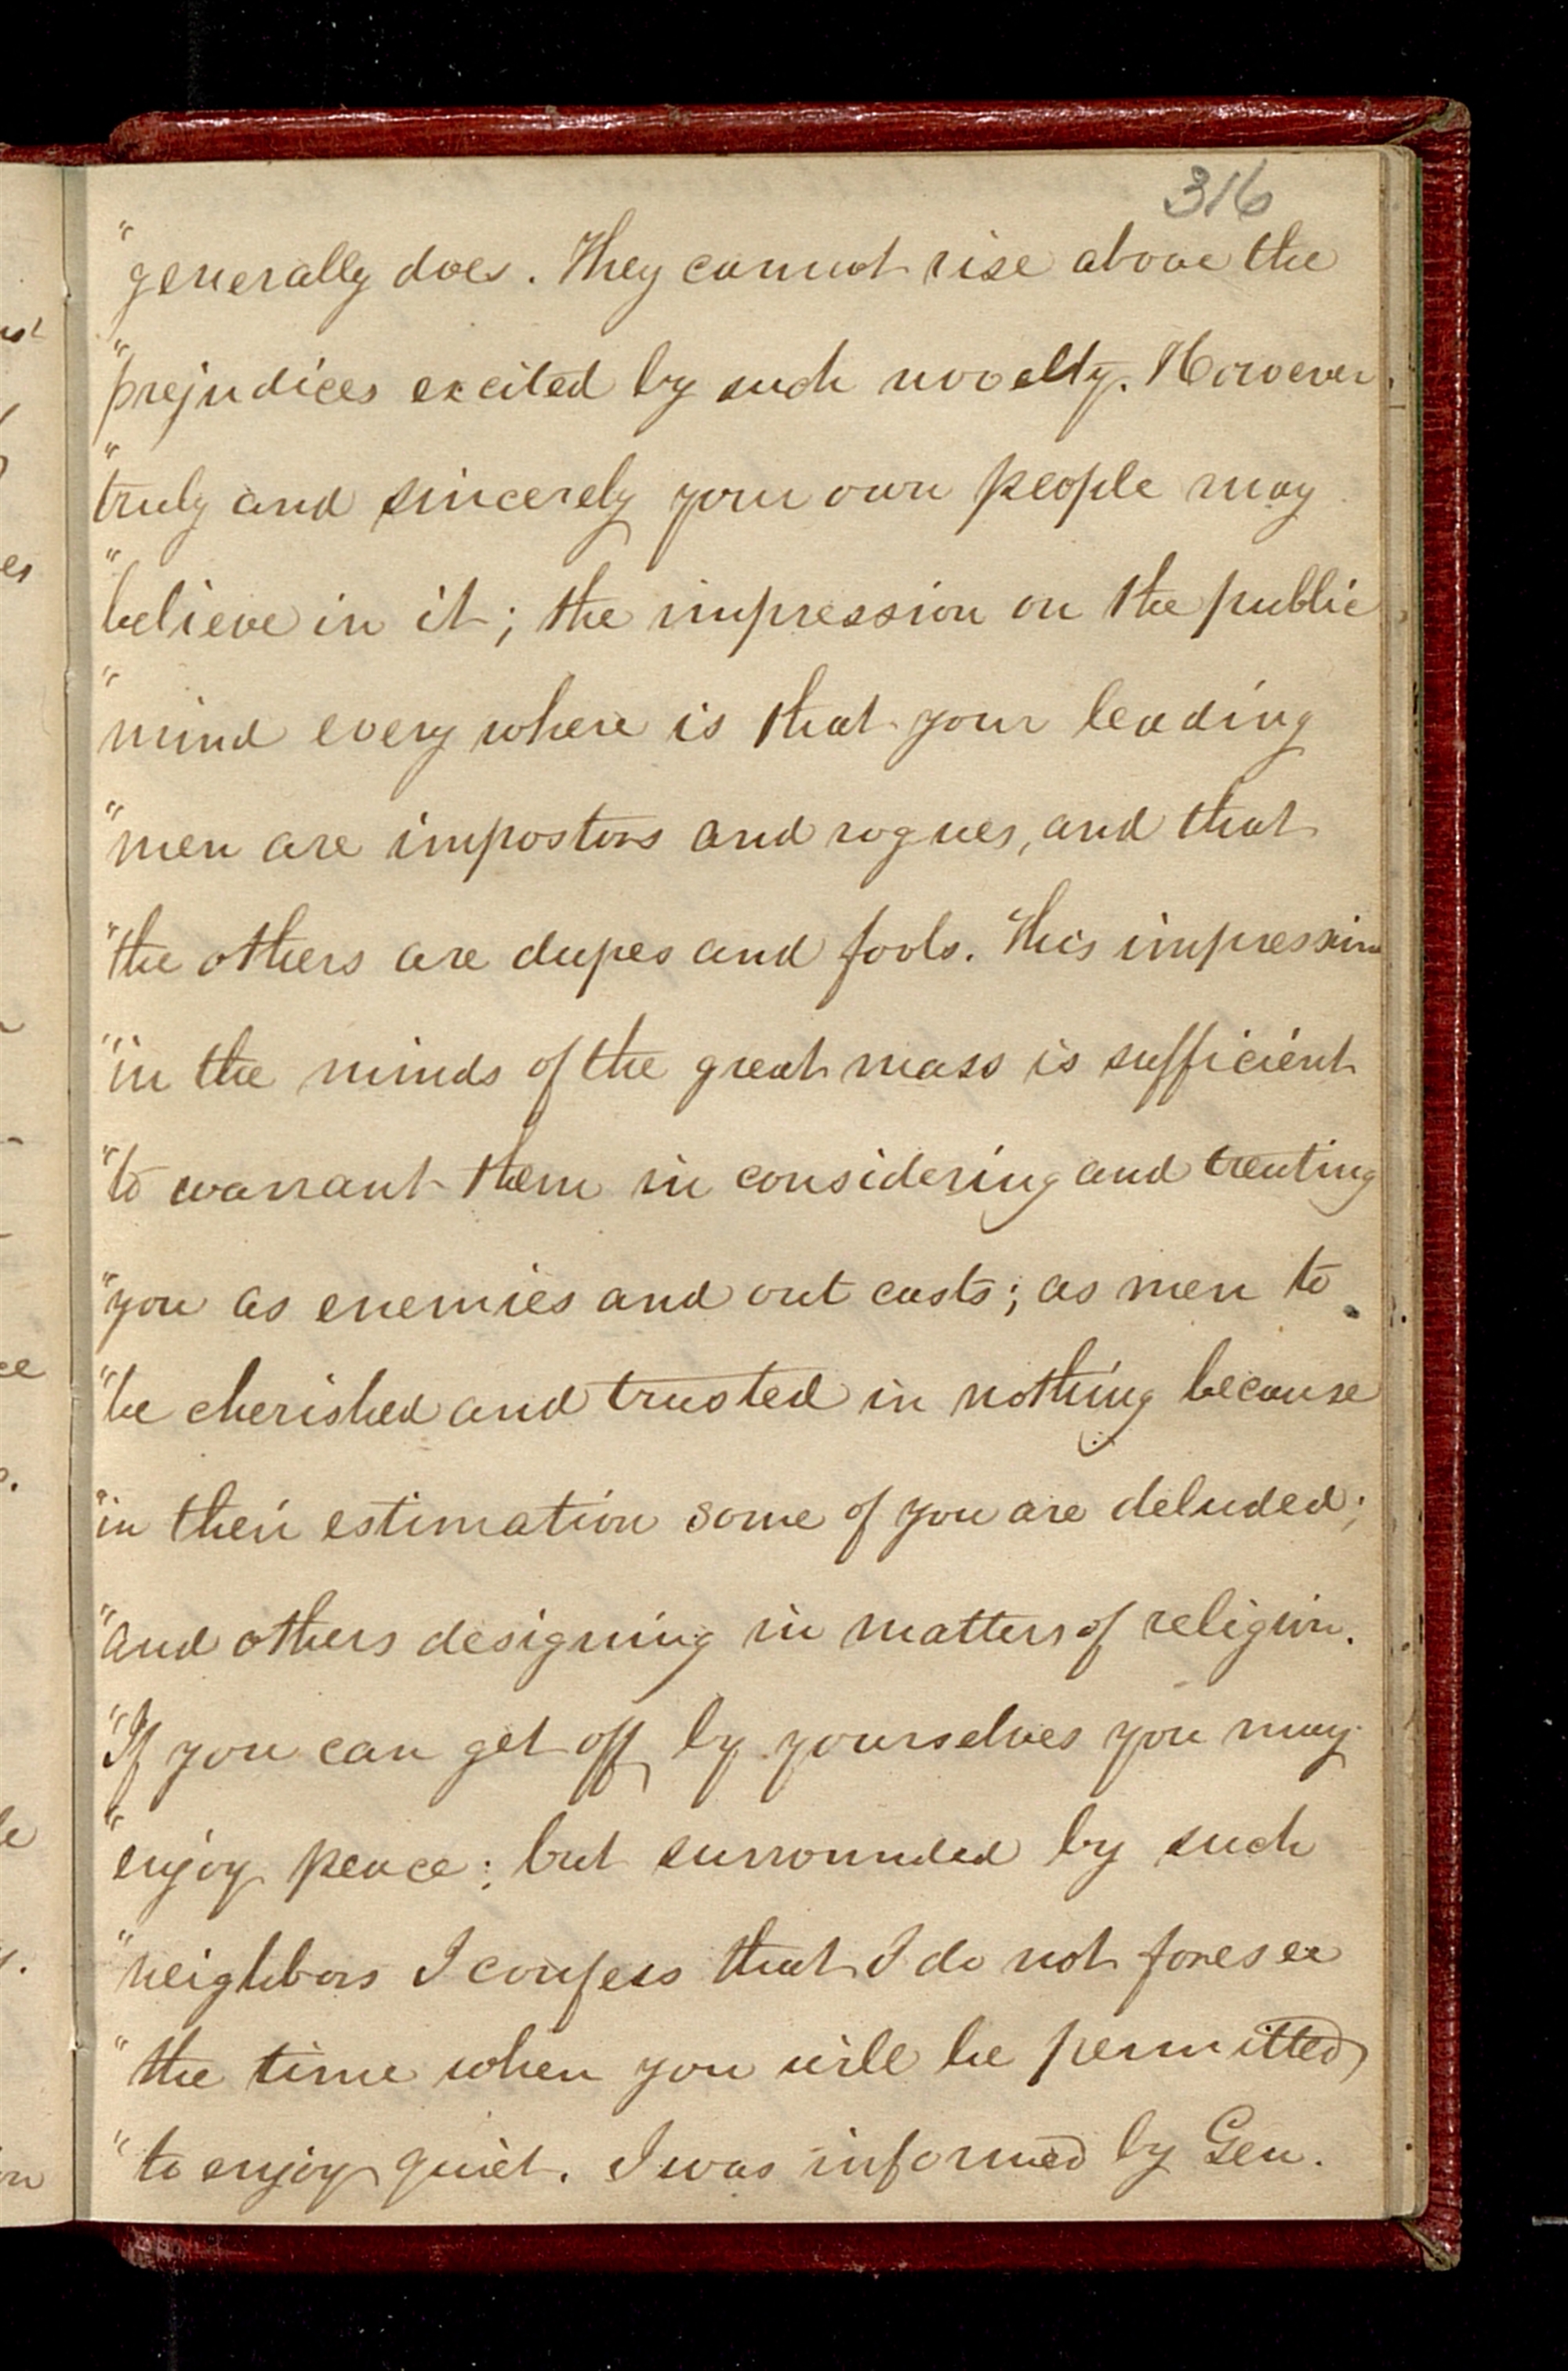 316
"generally does. They cannot rise above the
"prejudices excited by such novelty. However
"truly and sincerely your own people may
"believe in it; the impression on the public
"mind every where is that your leading
"men are impostors and rogues, and that
"the others are dupes and fools. This impression
"in the minds of the great mass is sufficient
"to warrant them in considering and treating
"you as enemies and out casts; as men to
"be cherished and trusted in nothing because
"in their estimation some of you are deluded;
"and others designing in matters of religion.
"If you can get off by yourselves you may
"enjoy peace; but surrounded by such
"neighbors I confess that I do not foresee
"the time when you will be permitted
"to enjoy quiet. I was informed by Gen.